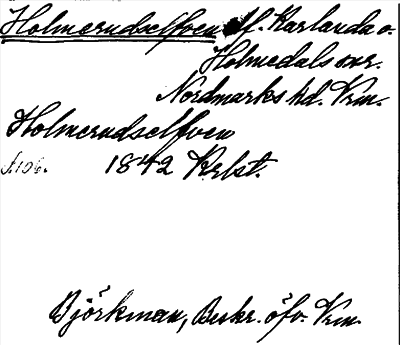 Holmerudselfven lf. Karlanda o.
Holmedals snr.
Nordmarks hd. Vrm.
Holmerudselfven
s. 106. 1842 Krlst.
Björkman, Beskr. öfv. Vrm.